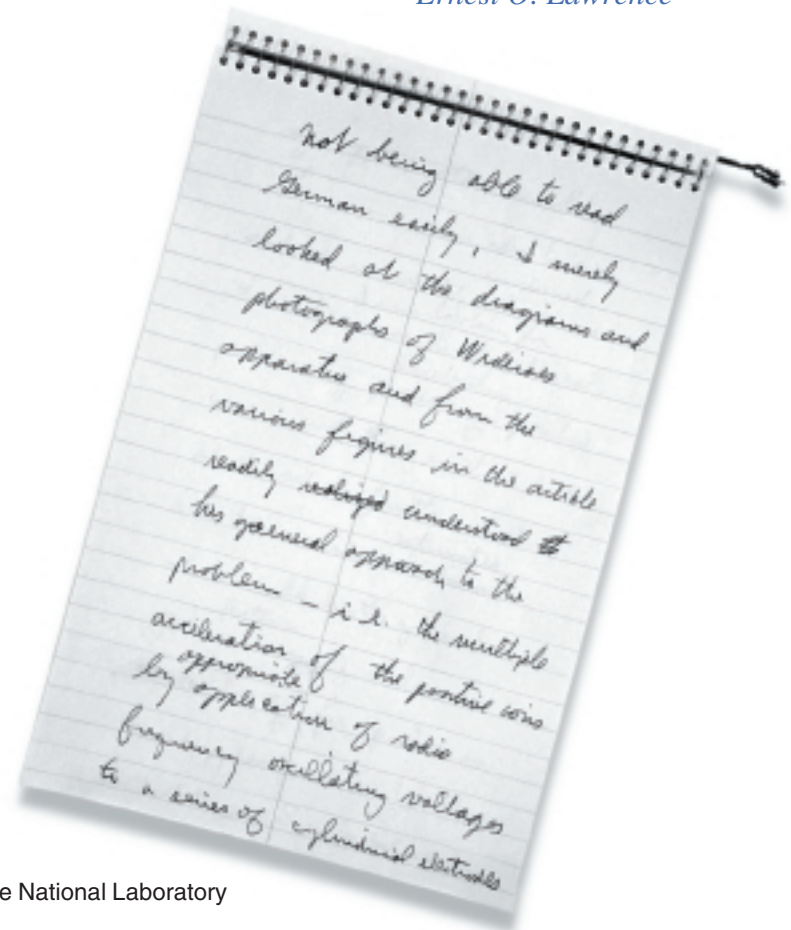 Ernest O. Lawrence
not being able to read
German easily, I merely
looked at the diagrams and
photographs of Wideröes
apparatus and from the
various figures in the article
readily realized understood
his general approach to the
problem — i.e. the multiple
acceleration of the positive ions
appropriate
by application of radio
frequency oscillating voltages
to a series of cylindrical electrodes
e National Laboratory